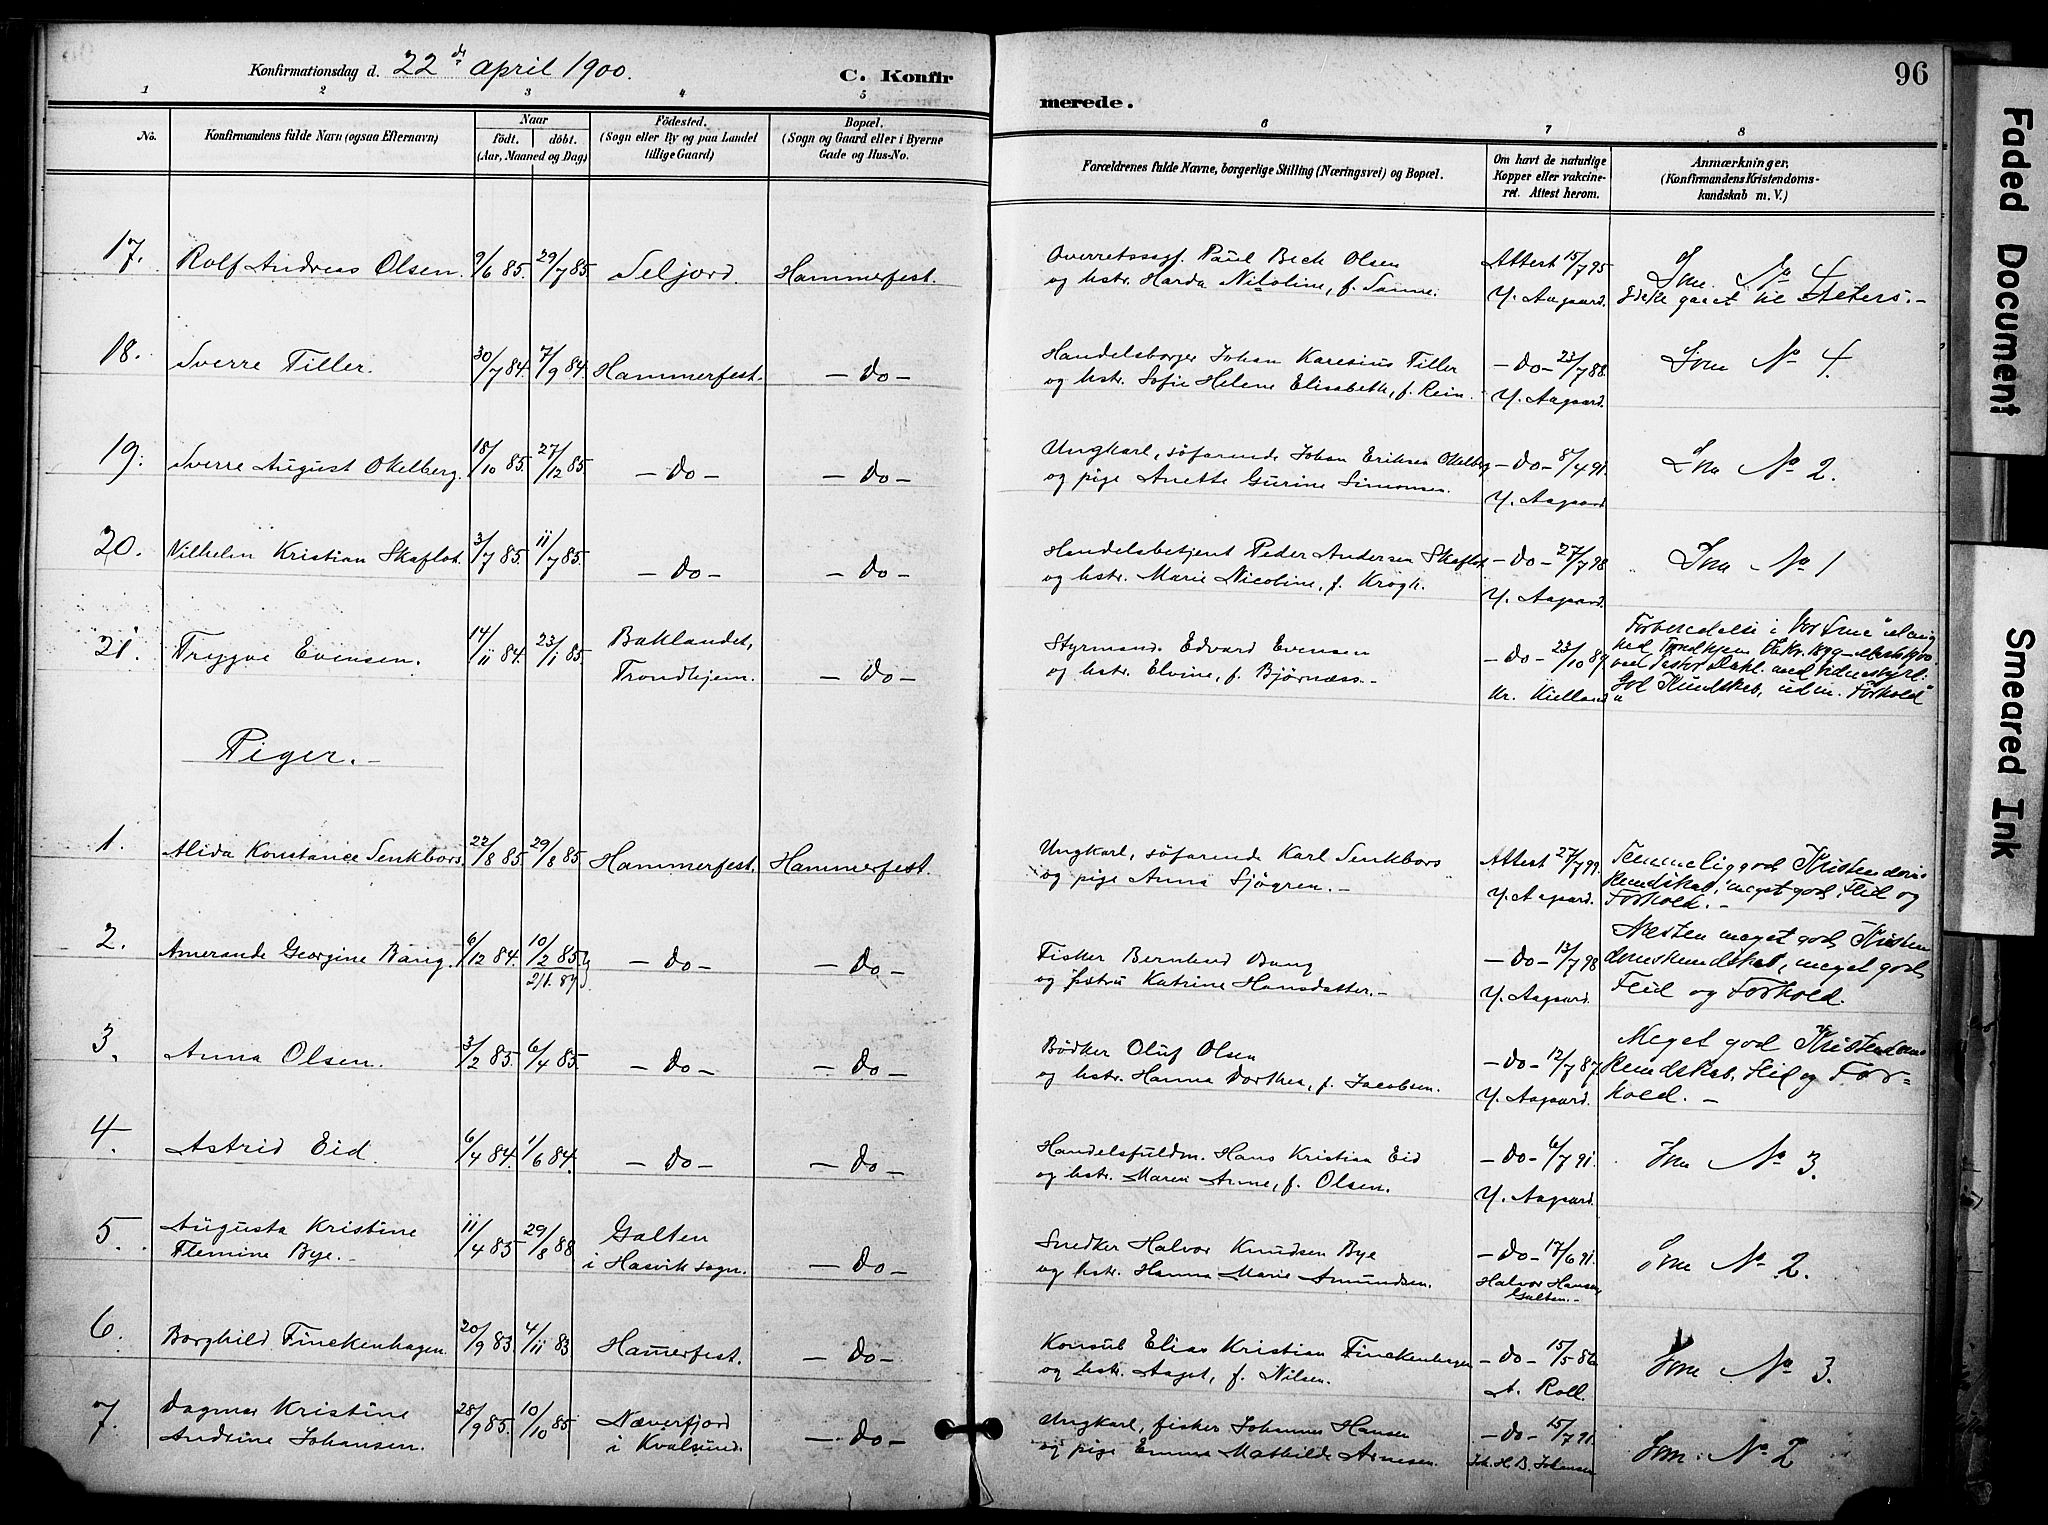 Konfirmationsdag d. 22de april 1900. C. Konfirmerede. 96
1 2 3 4 5 6 7 8
No. Konfirmandens fulde Navn (ogsaa Efternavn) Naar Födt. döbt. (Aar, Maaned og Dag) Födested. (Sogn eller By og paa Landet tillige Gaard) Bopæl. (Sogn og Gaard eller i Byerne Gade og Hus-No. Forældrenes fulde Navne, borgerlige Stilling (Næringsvei) og Bopæl. Om havt de naturlige Kopper eller vakcineret. Attest herom. Anmærkninger, (Konfirmandens Kristendomskundskab m. V.)
17. Rolf Andreas Olsen. 9/6 85. 29/7 85 Seljord. Hammerfest. Overretssagf. Paul Beck Olsen Attest 15/7 95 Som No 4
og hstr. Harda Nikoline, f. Sanne. Y. Aagaard. Ikke gaaet til Alters. -
18. Sverre Tiller. 30/7 84. 7/9 84. Hammerfest. - do - Handelsborger Johan Karesius Tiller - Do - 23/7 88. Som No 4.
og hstr. Sofie Helene Elisabeth, f. Rein. Y. Aagaard.
19. Sverre August Okelberg. 18/10 85. 27/12 85 - do - - do - Ungkarl, söfarende Johan Eriksen Okelberg - Do - 8/4 91. Som No 2.
og pige Anette Gurine Simonsen. Y. Aagaard
20. Vilhelm Kristian Skaflot. 3/7 85. 11/7 85. - do - - do - Handelsbetjent Peder Andersen Skaflot - Do - 27/7 98 Som No 1
og hstr. Marie Nicoline, f. Krogh. Y. Aagaard.
21. Trygve Evensen. 14/11 84. 23/1 85. Baklandet, Trondhjem. - do - Styrmand Edvard Evensen - Do - 23/10 89. Forberedelse i Vor Frue
og hstr. Elvine, f. Bjørnæss. - Kr. Kielland God Kundskab, udm. Forhold"
Piger. -
1. Alida Konstance Senkbors. 22/8 85. 29/8 85. Hammerfest. Hammerfest. Ungkarl, söfarende Karl Senkbors Attest 27/7 99. Temmelig god Kristendoms
og pige Anna Sjögren. - Y. Aagaard. kundskab, meget god Flid og Forhold. -
2. Amerande Georgine Bang. 6/12 84. 10/2 85 - do - - do - Fisker Bernhard Bang - Do - 13/7 98 Næsten meget god Kristen
og hstru Katrine Hansdatter. - Y. Aagaard. domskundskab, meget god Flid og Forhold.
3. Anna Olsen. 3/2 85. 6/4 85. - do - - do - Bödker Oluf Olsen - Do - 12/7 87. Meget god Kristendoms
og hstr. Hanna Dorthea, f. Jacobsen. Y. Aagaard. kundskab, Flid og Forhold. -
4. Astrid Eid. 6/4 84. 1/6 84. - do - - do - Handelsfuldm. Hans Kristian Eid - Do - 6/7 91. Som No 3.
og hstr. Maren Anne, f. Olsen. Y. Aagaard.
5. Augusta Kristine Flemine Bye. - 11/4 85 29/8 88 Galten i Hasvik sogn. - do - Snedker Halvor Knudsen Bye - Do - 17/6 91. Som No 2.
og hstr. Hanna Marie Amundsen. Halvor Hansen Galten. -
6. Borghild Finckenhagen. 20/9 83. 4/11 83 Hamerfest. - do - Konsul Elias Kristian Finckenhagen - do - 15/5 86 Som No 3.
og hstr. Aagot, f. Nilsen. A. Roll.
7. Dagmar Kristine Andrine Johansen. 28/9 85. 10/10 85 Næverfjord i Kvalsund. - do - Ungkarl, fisker Johannes Hansen - do - 15/7 91. Som No 2
og pige Emma Mathilde Arnesen. Joh. H. B. Johansen
Faded Document
Smeared Ink